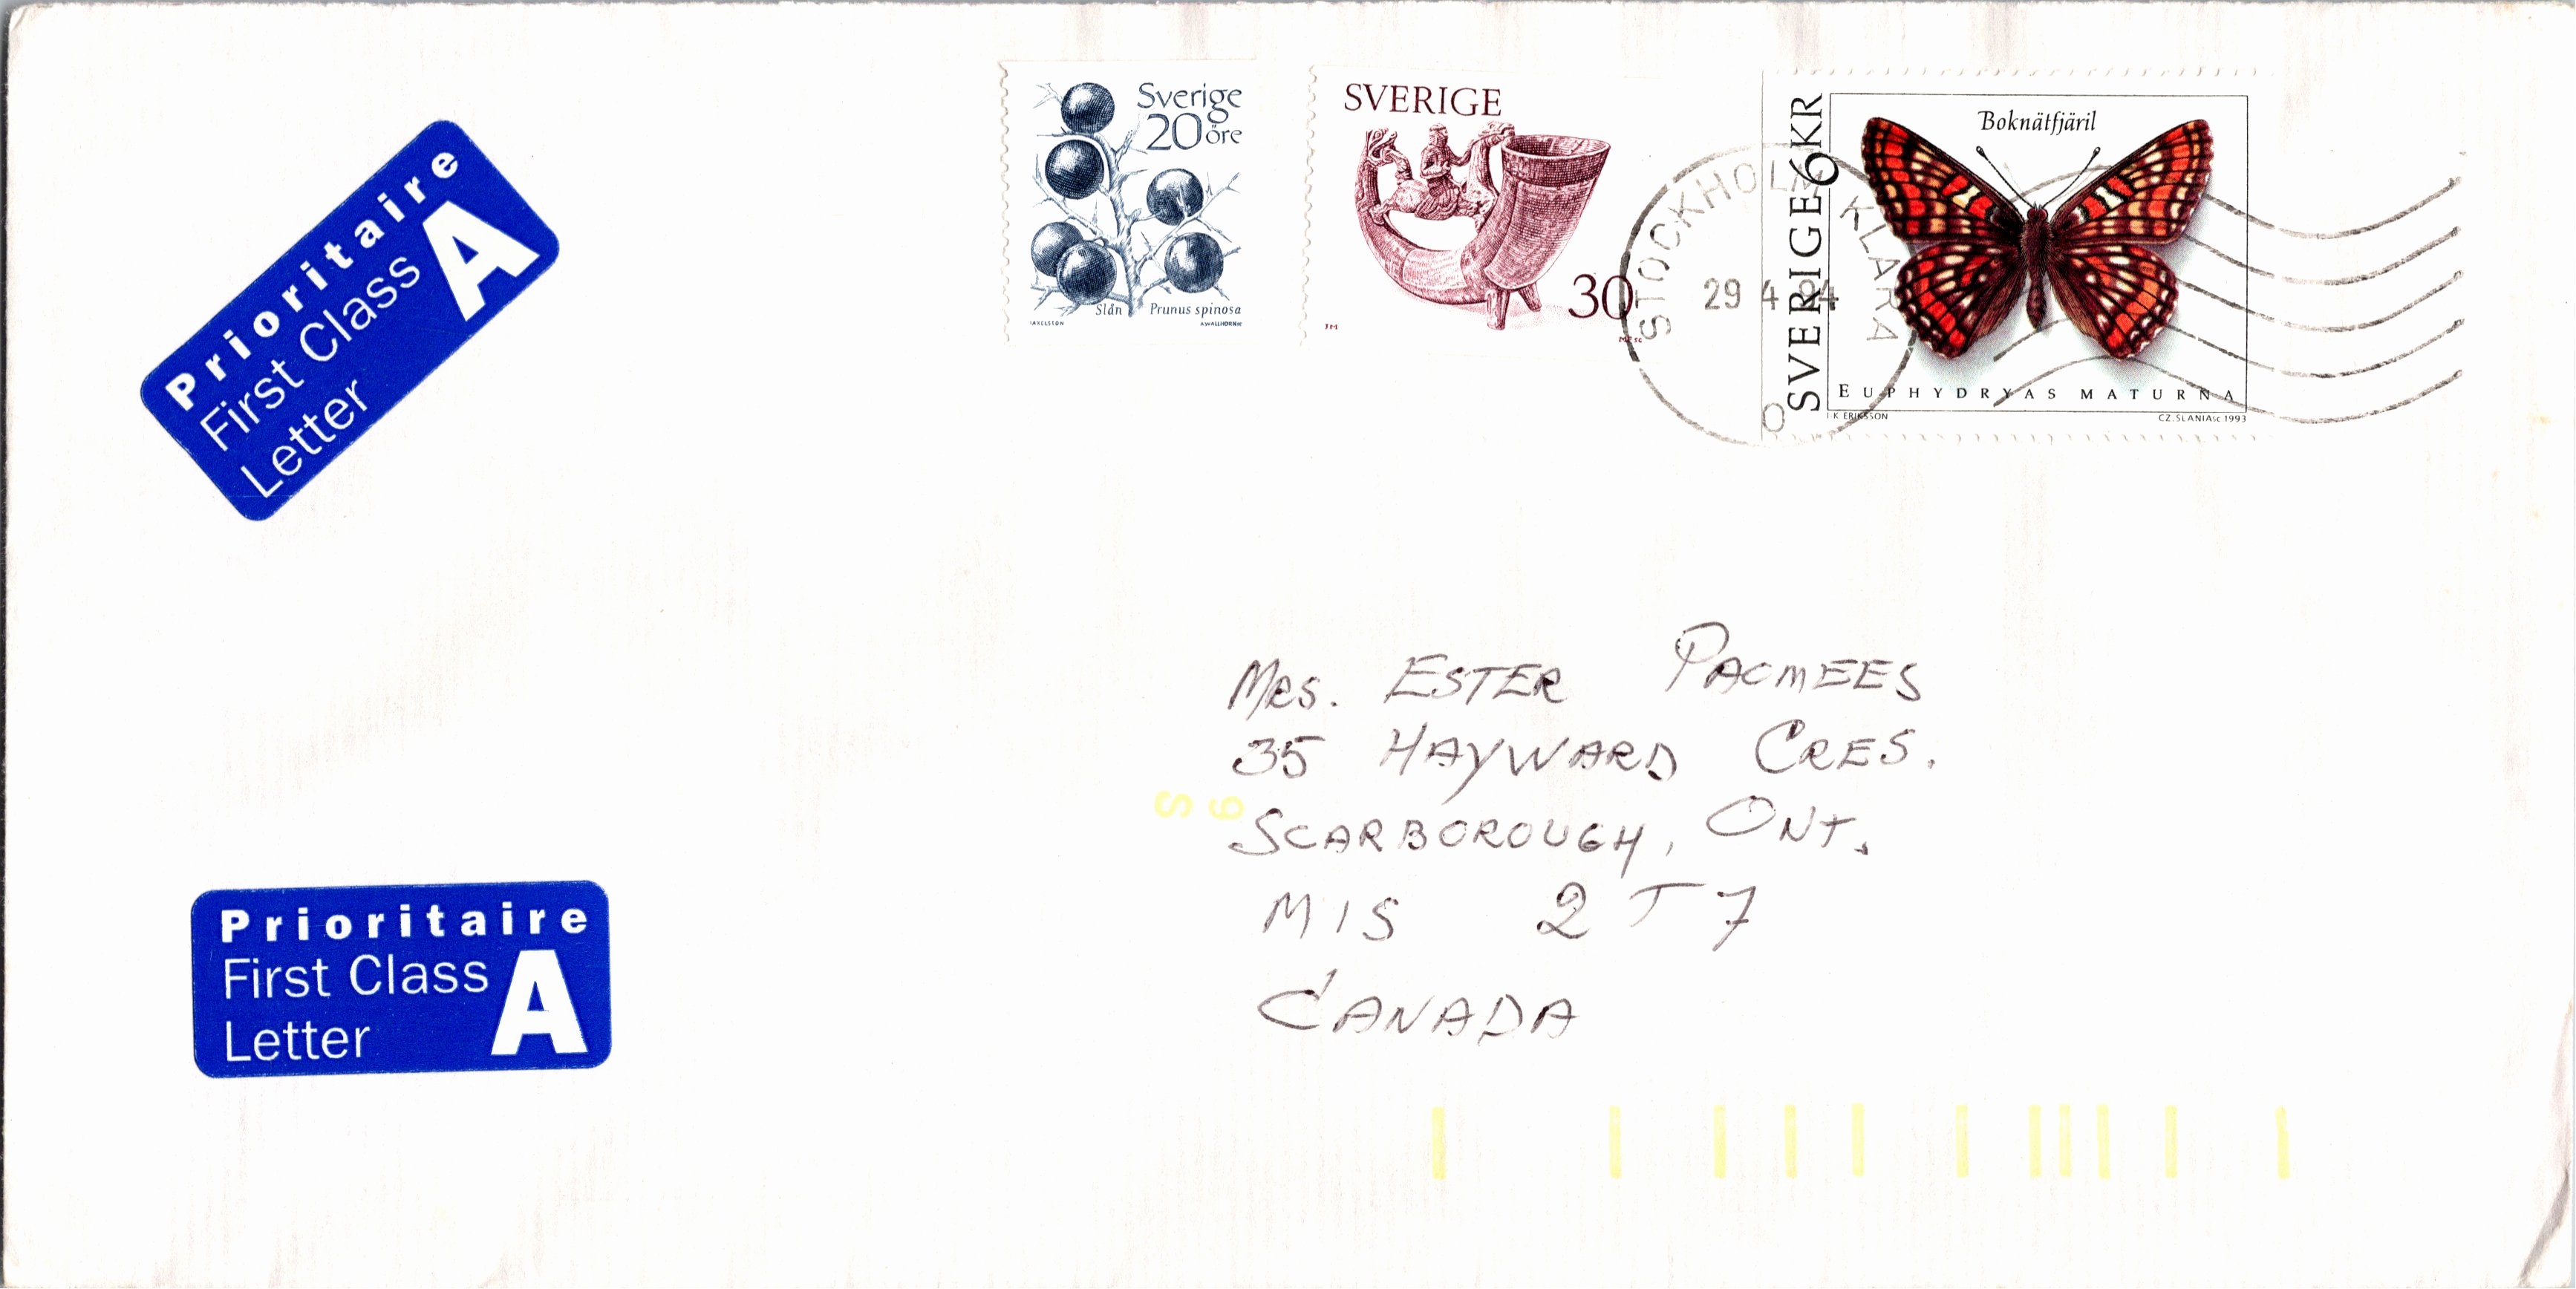 Prioritaire
First Class
Letter
A
Sverige
20 öre
Slån Prunus spinosa
AXELSSON
SVERIGE
30
SVERIGE 6KR
Boknätfjäril
EUPHYDRYAS MATURNA
I-K ERIKSSON CZ.SLANIA sc 1993
STOCKHOLM KLARA
29 4 94
O
MRS. ESTER PACMEES
35 HAYWARD CRES.
SCARBOROUGH, ONT.
M1S 2T7
CANADA
S 6
Prioritaire
First Class
Letter
A